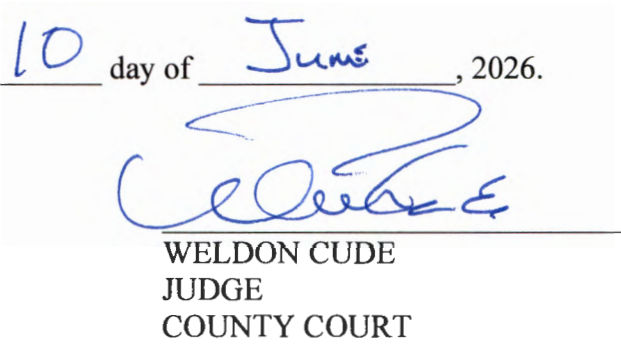 10 day of June, 2026.
WELDON CUDE
JUDGE
COUNTY COURT